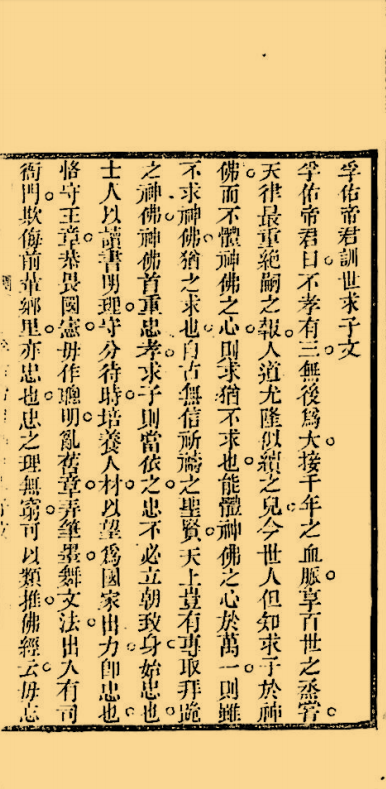 孚佑帝君訓世求子文
孚佑帝君曰不孝有三無後爲大接千年之血脈享百世之烝嘗
天律最重絕嗣之報人道尤隆似續之兒今世人但知求子於神
佛而不體神佛之心則求猶不求也能體神佛之心於萬一則雖
不求神佛猶之求也自古無信祈禱之聖賢天上豈有專取拜跪
之神佛神佛首重忠孝求子則當依之忠不必立朝致身始忠也
士人以讀書明理守分待時培養人材以望爲國家出力卽忠也
恪守王章恭畏國憲毋作聰明亂舊章弄筆墨舞文法出入有司
衙門欺侮前輩鄉里亦忠也忠之理無窮可以類推佛經云毋忘